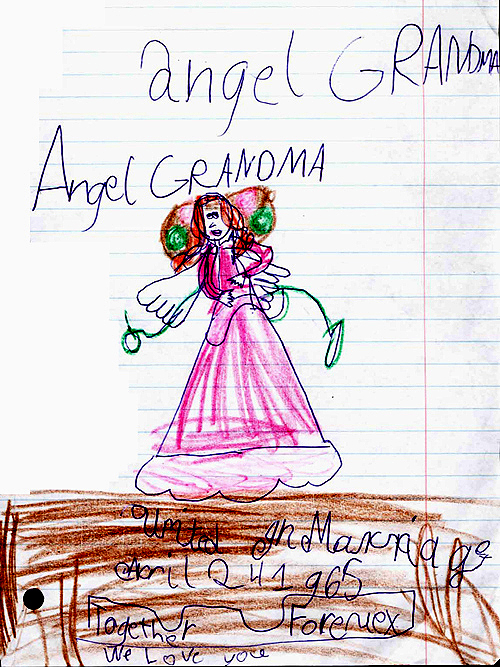 angel GRANDMA
Angel GRANDMA
United In Marriage
April 24 1965
Together Forevex
We Love you